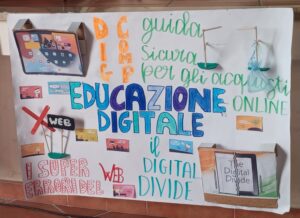 DIGCAMP
guida
sicura
per gli acquisti
ONLINE
EDUCAZIONE
DIGITALE
WEB
I SUPER
ERRORI DEL
WEB
il
DIGITAL
DIVIDE
The
Digital
Divide